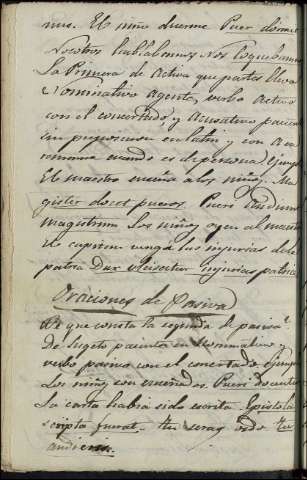 nus. El niño duerme Puer dormit
Nosotros hablabamos Nos loquebamur
La Primera de Activa que partes lleva
Nominativo Agente, verbo Activo
con el concertado, y Acusativo paciente
sin preposicion en latin y con A en
romance cuando es de persona. Ejemplo
El maestro enseña a los niños. Ma
gister docet pueros. Pueri audiunt
magistrum Los niños oyen al maestro
capitan venga las injurias de la
patria Dux ulciscitur injurias patriae
Oraciones de Pasiva
De que consta la segunda de pasiva?
de Sugeto paciente en Nominativo y
verbo pasivo con el concertado Ejemplo
Los niños son enseñados. Pueri docentur
La carta habia sido escrita Epistola
scripta fuerat. tu seras oido tu
audieris.